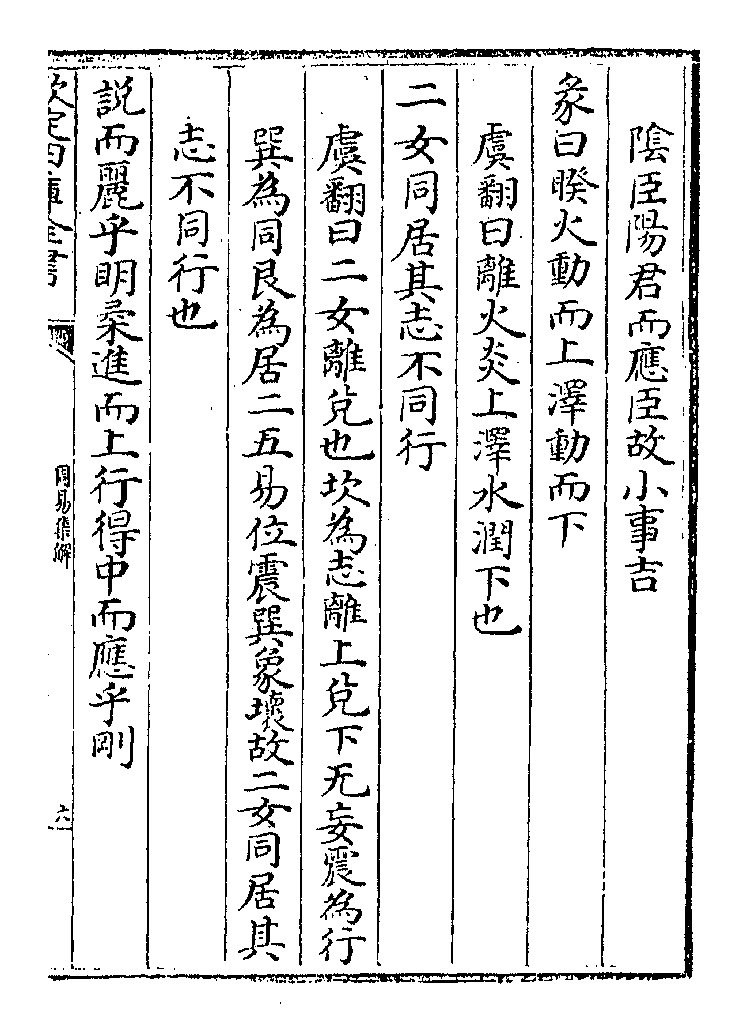 陰臣陽君而應臣故小事吉
彖曰睽火動而上澤動而下
虞翻曰離火炎上澤水潤下也
二女同居其志不同行
虞翻曰二女離兌也坎為志離上兌下无妄震為行
巽為同艮為居二五易位震巽象壞故二女同居其
志不同行也
説而麗乎明柔進而上行得中而應乎剛
欽定四庫全書
周易集解
六